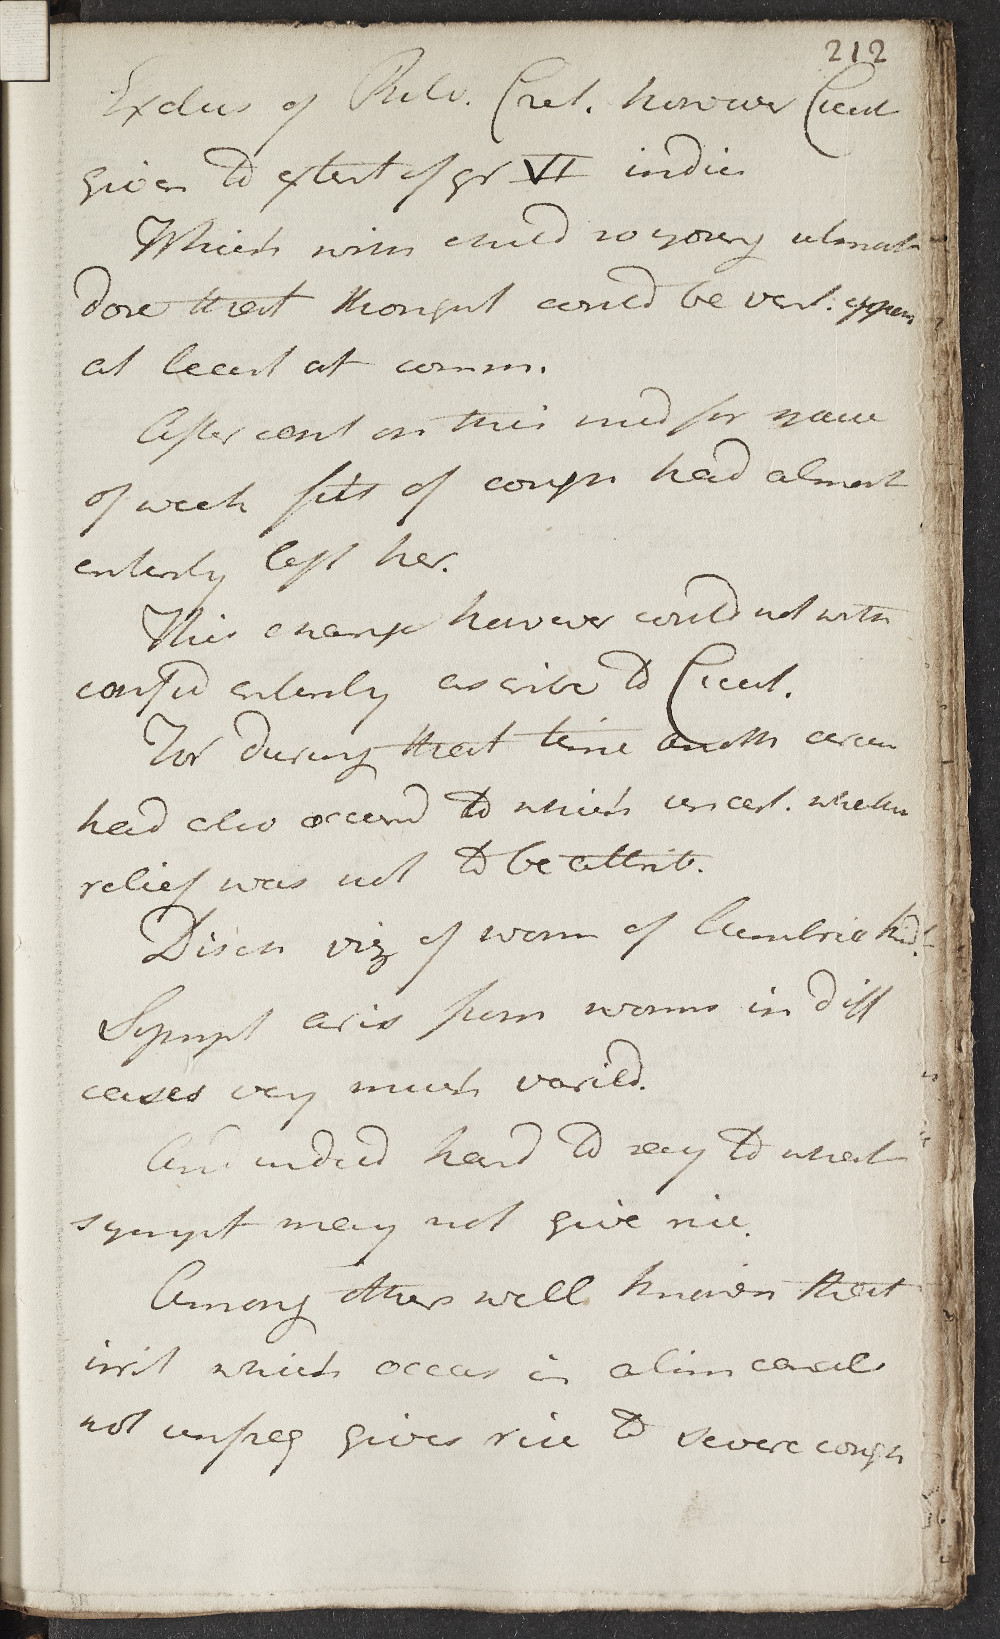 212
Exclus of Pulv. Cret. however Cicut
given to extent of gr VI indie
Which with child so young almost
dose that thought could be vent. 
at least at comm.
After cont on this med for space
of week fits of cough had almost
enterly left her.
This change however could not with
confid enterly ascribe to Cicut.
For during that time anoth circum
had also occurd to which uncert. whether
relief was not to be attrib.
Disch viz of worm of Lumbric kind.
Sympt aris from worms in diff
cases very much varied.
And indeed hard to say to what
sympt may not give rise.
Among others well known that
irrit which occurs in alim canal
not unfreq gives rise to severe cough